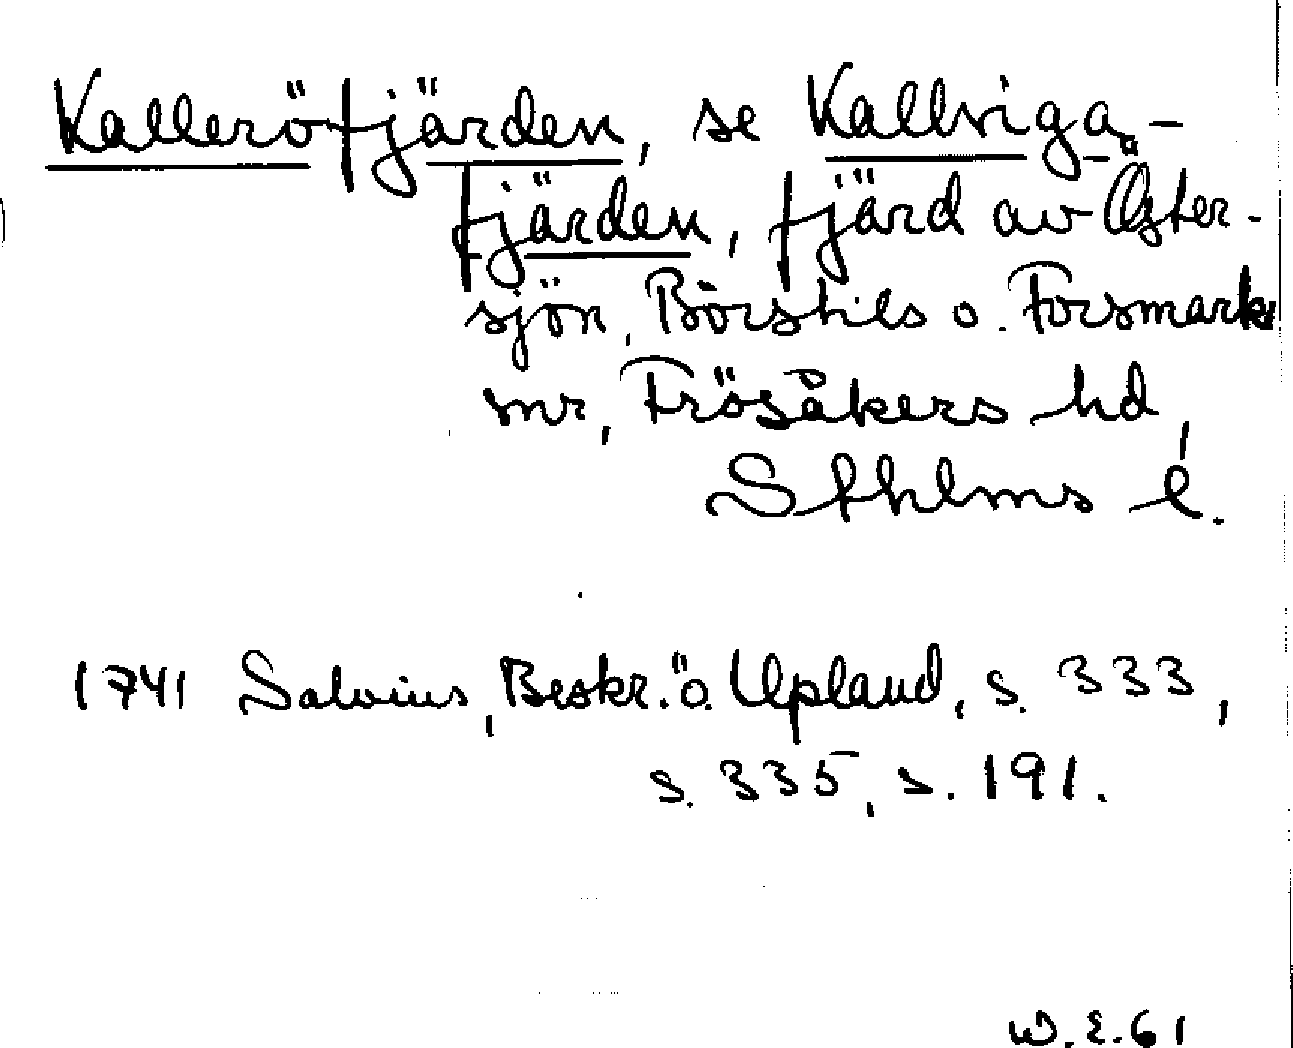 Kalleröfjärden, se Kallviga-
fjärden, fjärd av Öster-
sjön, Börstils o. Forsmarks
snr, Frösåkers hd,
Sthlms l.
1741 Salvius, Beskr. ö. Upland, s. 333,
s. 335, s. 191.
W. E. 61